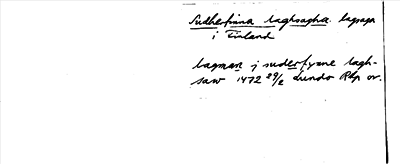 Sudherfinna laghsagha, lagsaga
i Finland
lagman j suderfynne lagh-
saw 1472 29/2 Lundo Rbp or.